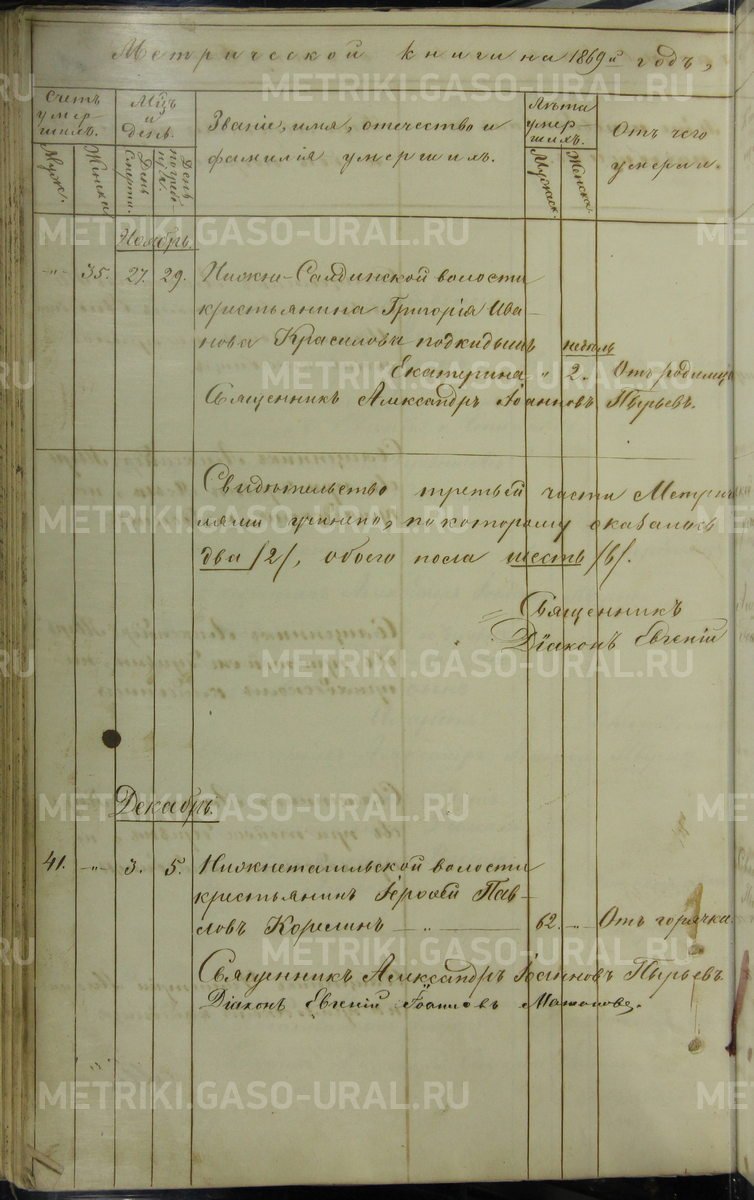 Метрической книги на 1869й годъ,
Счетъ умер-шихъ.
Мцъ и день.
Званіе, имя, отечество и
фамилія умершихъ.
Лѣта умер-шихъ.
Отъ чего
умерли.
Муже.
Женска
День Смерти.
День
Мужеск.
Женска.
Ноябрь.
-"- 35. 27. 29. Нижне-Салдинской волости
крестьянина Григорія Ива-
нова Красилова подкидышъ недѣль
Екатерина " 2. Отъ родимца
Священникъ Александръ Іоанновъ Пырьевъ.
Свидѣтельство третьей части Метрич
учинено, по которому оказалось
два /2/, обоего посла шесть /6/.
Священникъ
Діаконъ Евгеній
Декабрь.
41. -"- 3. 5. Нижнетагильской волости
крестьянинъ Іероѳей Пав-
ловъ Корелинъ — " — 62. -"- Отъ горячки.
Священникъ Александръ Іоанновъ Пырьевъ.
Діаконъ Евгеній Іоанновъ
METRIKI.GASO-URAL.RU